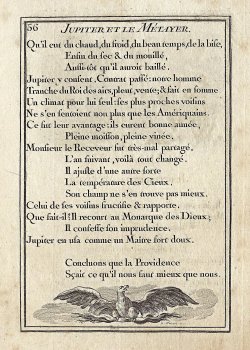 56
JUPITER ET LE MÉTAYER.
Qu'il eut du chaud, du froid, du beau temps, de la bise,
Enfin du sec & du mouillé,
Aussi-tôt qu'il auroit baillé.
Jupiter y consent. Contrat passé: notre homme
Tranche du Roi des airs, pleut, vente; & fait en somme
Un climat pour lui seul: ses plus proches voisins
Ne s'en sentoient non plus que les Amériquains.
Ce fut leur avantage: ils eurent bonne année,
Pleine moisson, pleine vinée.
Monsieur le Receveur fut très-mal partagé.
L'an suivant, voilà tout changé.
Il ajuste d'une autre sorte
La température des Cieux.
Son champ ne s'en trouve pas mieux.
Celui de ses voisins fructifie & rapporte.
Que fait-il? Il recourt au Monarque des Dieux;
Il confesse son imprudence.
Jupiter en usa comme un Maître fort doux.
Concluons que la Providence
Sçait ce qu'il nous faut mieux que nous.